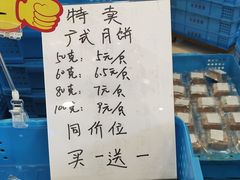 特 卖
广式月饼
50克：5元/个
60克：6.5元/个
80克：7元/个
100克：9元/个
同价位
买一送一